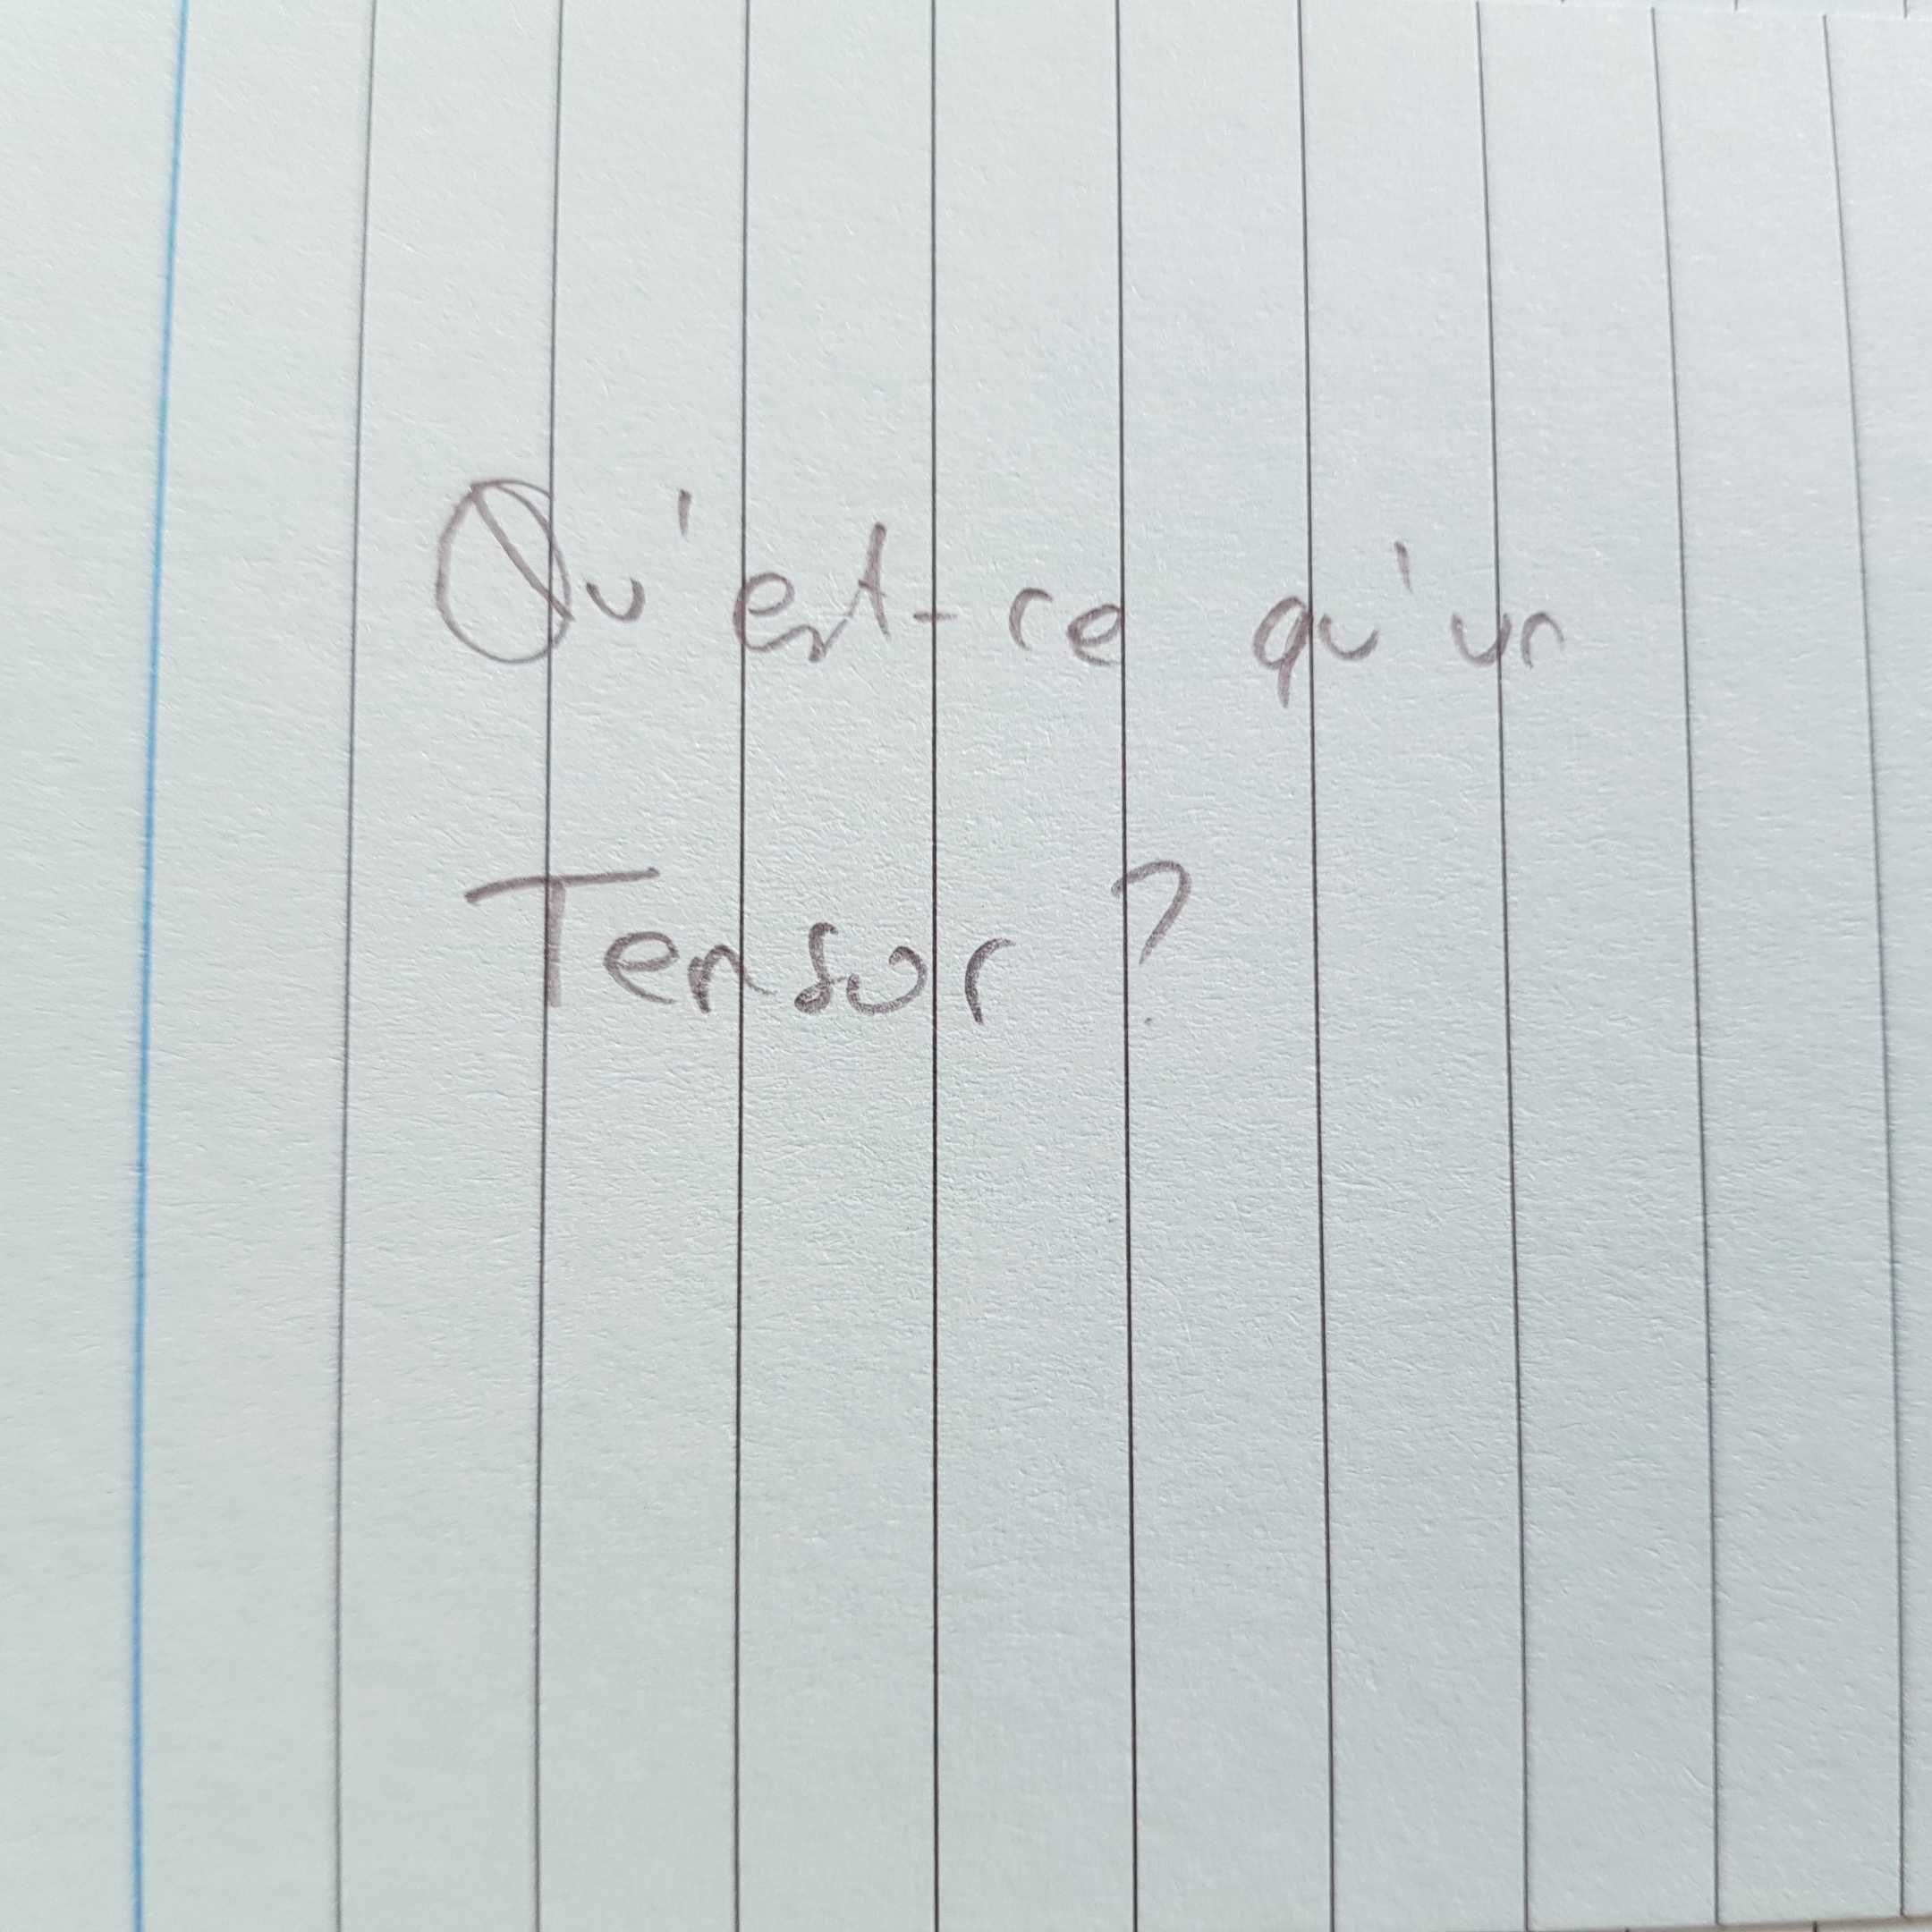 Qu'est-ce qu'un
Tensor ?